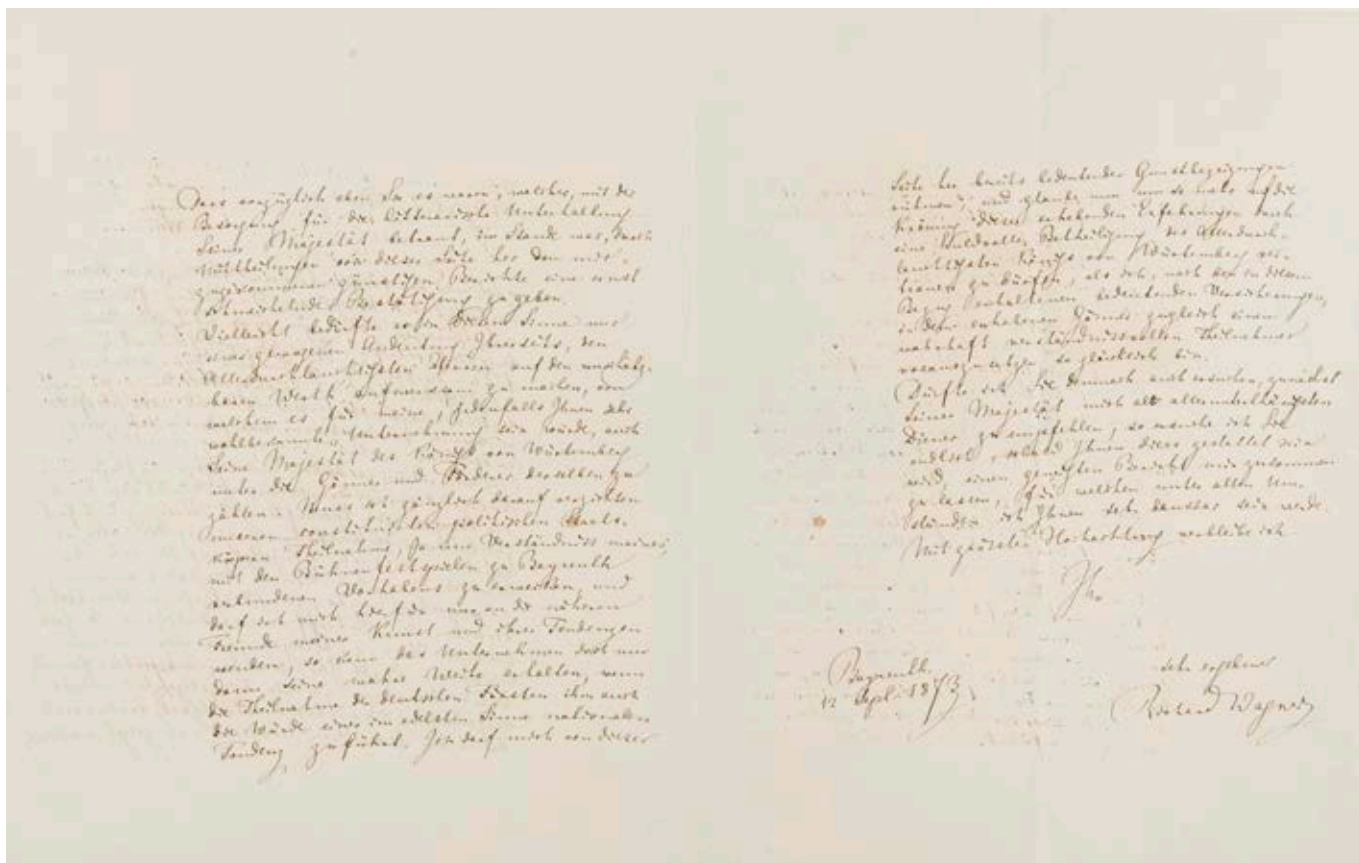 Dass vorzüglich eben Sie es waren, welcher, mit der
Besorgung für die litterarische Unterhaltung
Seiner Majestät betraut, im Stande war, durch
Mittheilungen von dieser Seite her dem mir
zugekommenen günstigen Berichte eine ernst
schmeichelnde Bestätigung zu geben.
Vielleicht bedürfte es in diesem Sinne nur
einer geneigten Andeutung Ihrerseits, den
Allerdurchlauchtigsten Herrn auf den unschätz-
baren Werth aufmerksam zu machen, von
welchem es für meine, jedenfalls Ihnen sehr
wohlbekannte, Unternehmung sein würde, auch
Seine Majestät den König von Würtemberg
unter die Gönner und Förderer derselben zu
zählen. Muss ich gänzlich darauf verzichten
unseren constituirten politischen Staats-
körpern Theilnahme, ja nur Verständniss meines,
mit den Bühnenfestspielen zu Bayreuth
verbundenen Vorhabens zu erwecken, und
darf ich mich hierfür nur an die näheren
Freunde meiner Kunst und ihrer Tendenzen
wenden, so kann das Unternehmen doch nur
dann seine wahre Weihe erhalten, wenn
die Theilnahme der deutschen Fürsten ihm auch
die Würde einer im edelsten Sinne nationalen
Tendenz zuführt. Ich darf mich von dieser
Seite her bereits bedeutender Gunstbezeigungen
rühmen, und glaube nun um so mehr auf die
Krönung dieser erhebenden Erfahrungen durch
eine huldvolle Betheiligung des Allerdurch-
lauchtigsten Königs von Würtemberg ver-
trauen zu dürfen, als ich, nach den in diesem
Bezug erhaltenen bedeutenden Versicherungen,
in dem erhabenen Gönner zugleich einen
wahrhaft verständnissvollen Theilnehmer
vorauszusetzen so glücklich bin.
Dürfte ich Sie demnach ersuchen, zunächst
Seiner Majestät mich als alleruntertänigsten
Diener zu empfehlen, so ersuche ich Sie
endlich, sobald Ihnen diess gestattet sein
wird, einen geneigten Bericht mir zukommen
zu lassen, für welchen unter allen Um-
ständen ich Ihnen sehr dankbar sein werde.
Mit grösster Hochachtung verbleibe ich
Ihr
sehr ergebener
Bayreuth.
12 Sept. 1873.
Richard Wagner